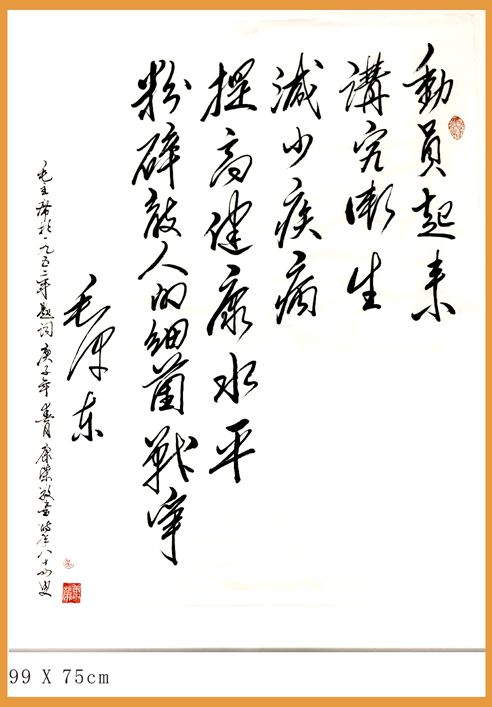 動員起来
講究衛生
減少疾病
提高健康水平
粉碎敌人的細菌战争
毛泽东
毛主席於一九五二年题词 庚子年春月 康 敬书 时年八十四叟
99 X 75cm